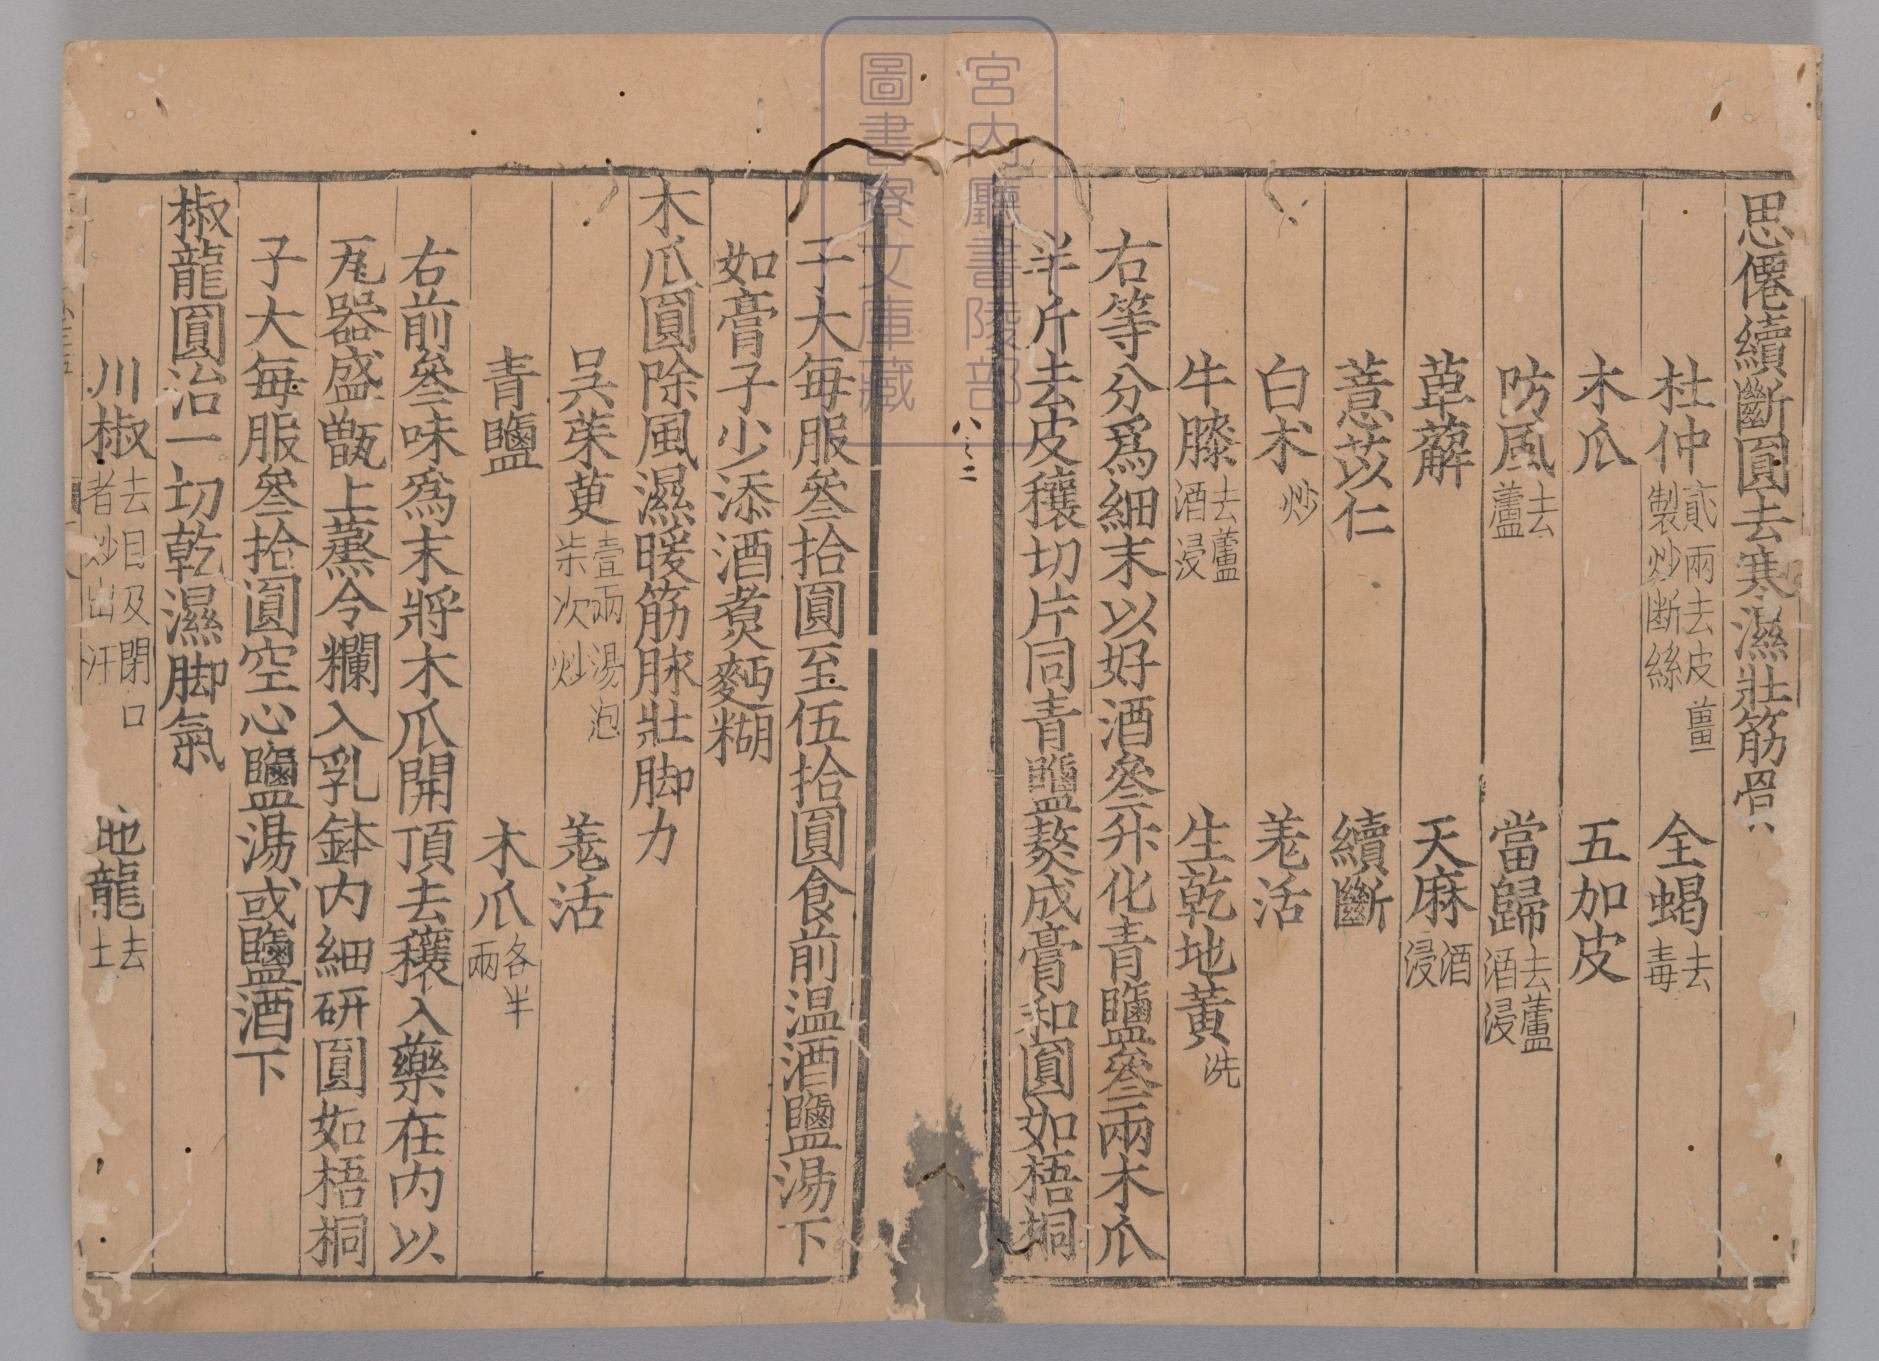 思僊續斷圓去寒濕壯筋骨
杜仲貳兩去皮薑製炒断絲 全蝎去毒
木瓜 五加皮
防風去蘆 當歸去蘆酒浸
萆薢 天麻酒浸
薏苡仁 續斷
白朮炒 羗活
牛膝去蘆酒浸 生乾地黃洗
右等分爲細末以好酒叄升化青鹽叄兩木瓜
半斤去皮穰切片同青鹽熬成膏和圓如梧桐
子大每服叄拾圓至伍拾圓食前温酒鹽湯下
如膏子少添酒煑麪糊
木瓜圓除風濕暖筋脉壯脚力
吳茱萸壹兩湯泡柒次炒 羗活
青鹽 木瓜各半兩
右前叄味爲末將木瓜開頂去穰入藥在内以
瓦器盛甑上蒸令糷入乳鉢内細研圓如梧桐
子大每服叄拾圓空心鹽湯或鹽酒下
椒龍圓治一切乾濕脚氣
川椒去目及閉口者炒出汗 地龍去土
八之二
宮内廳書陵部
圖書寮文庫藏